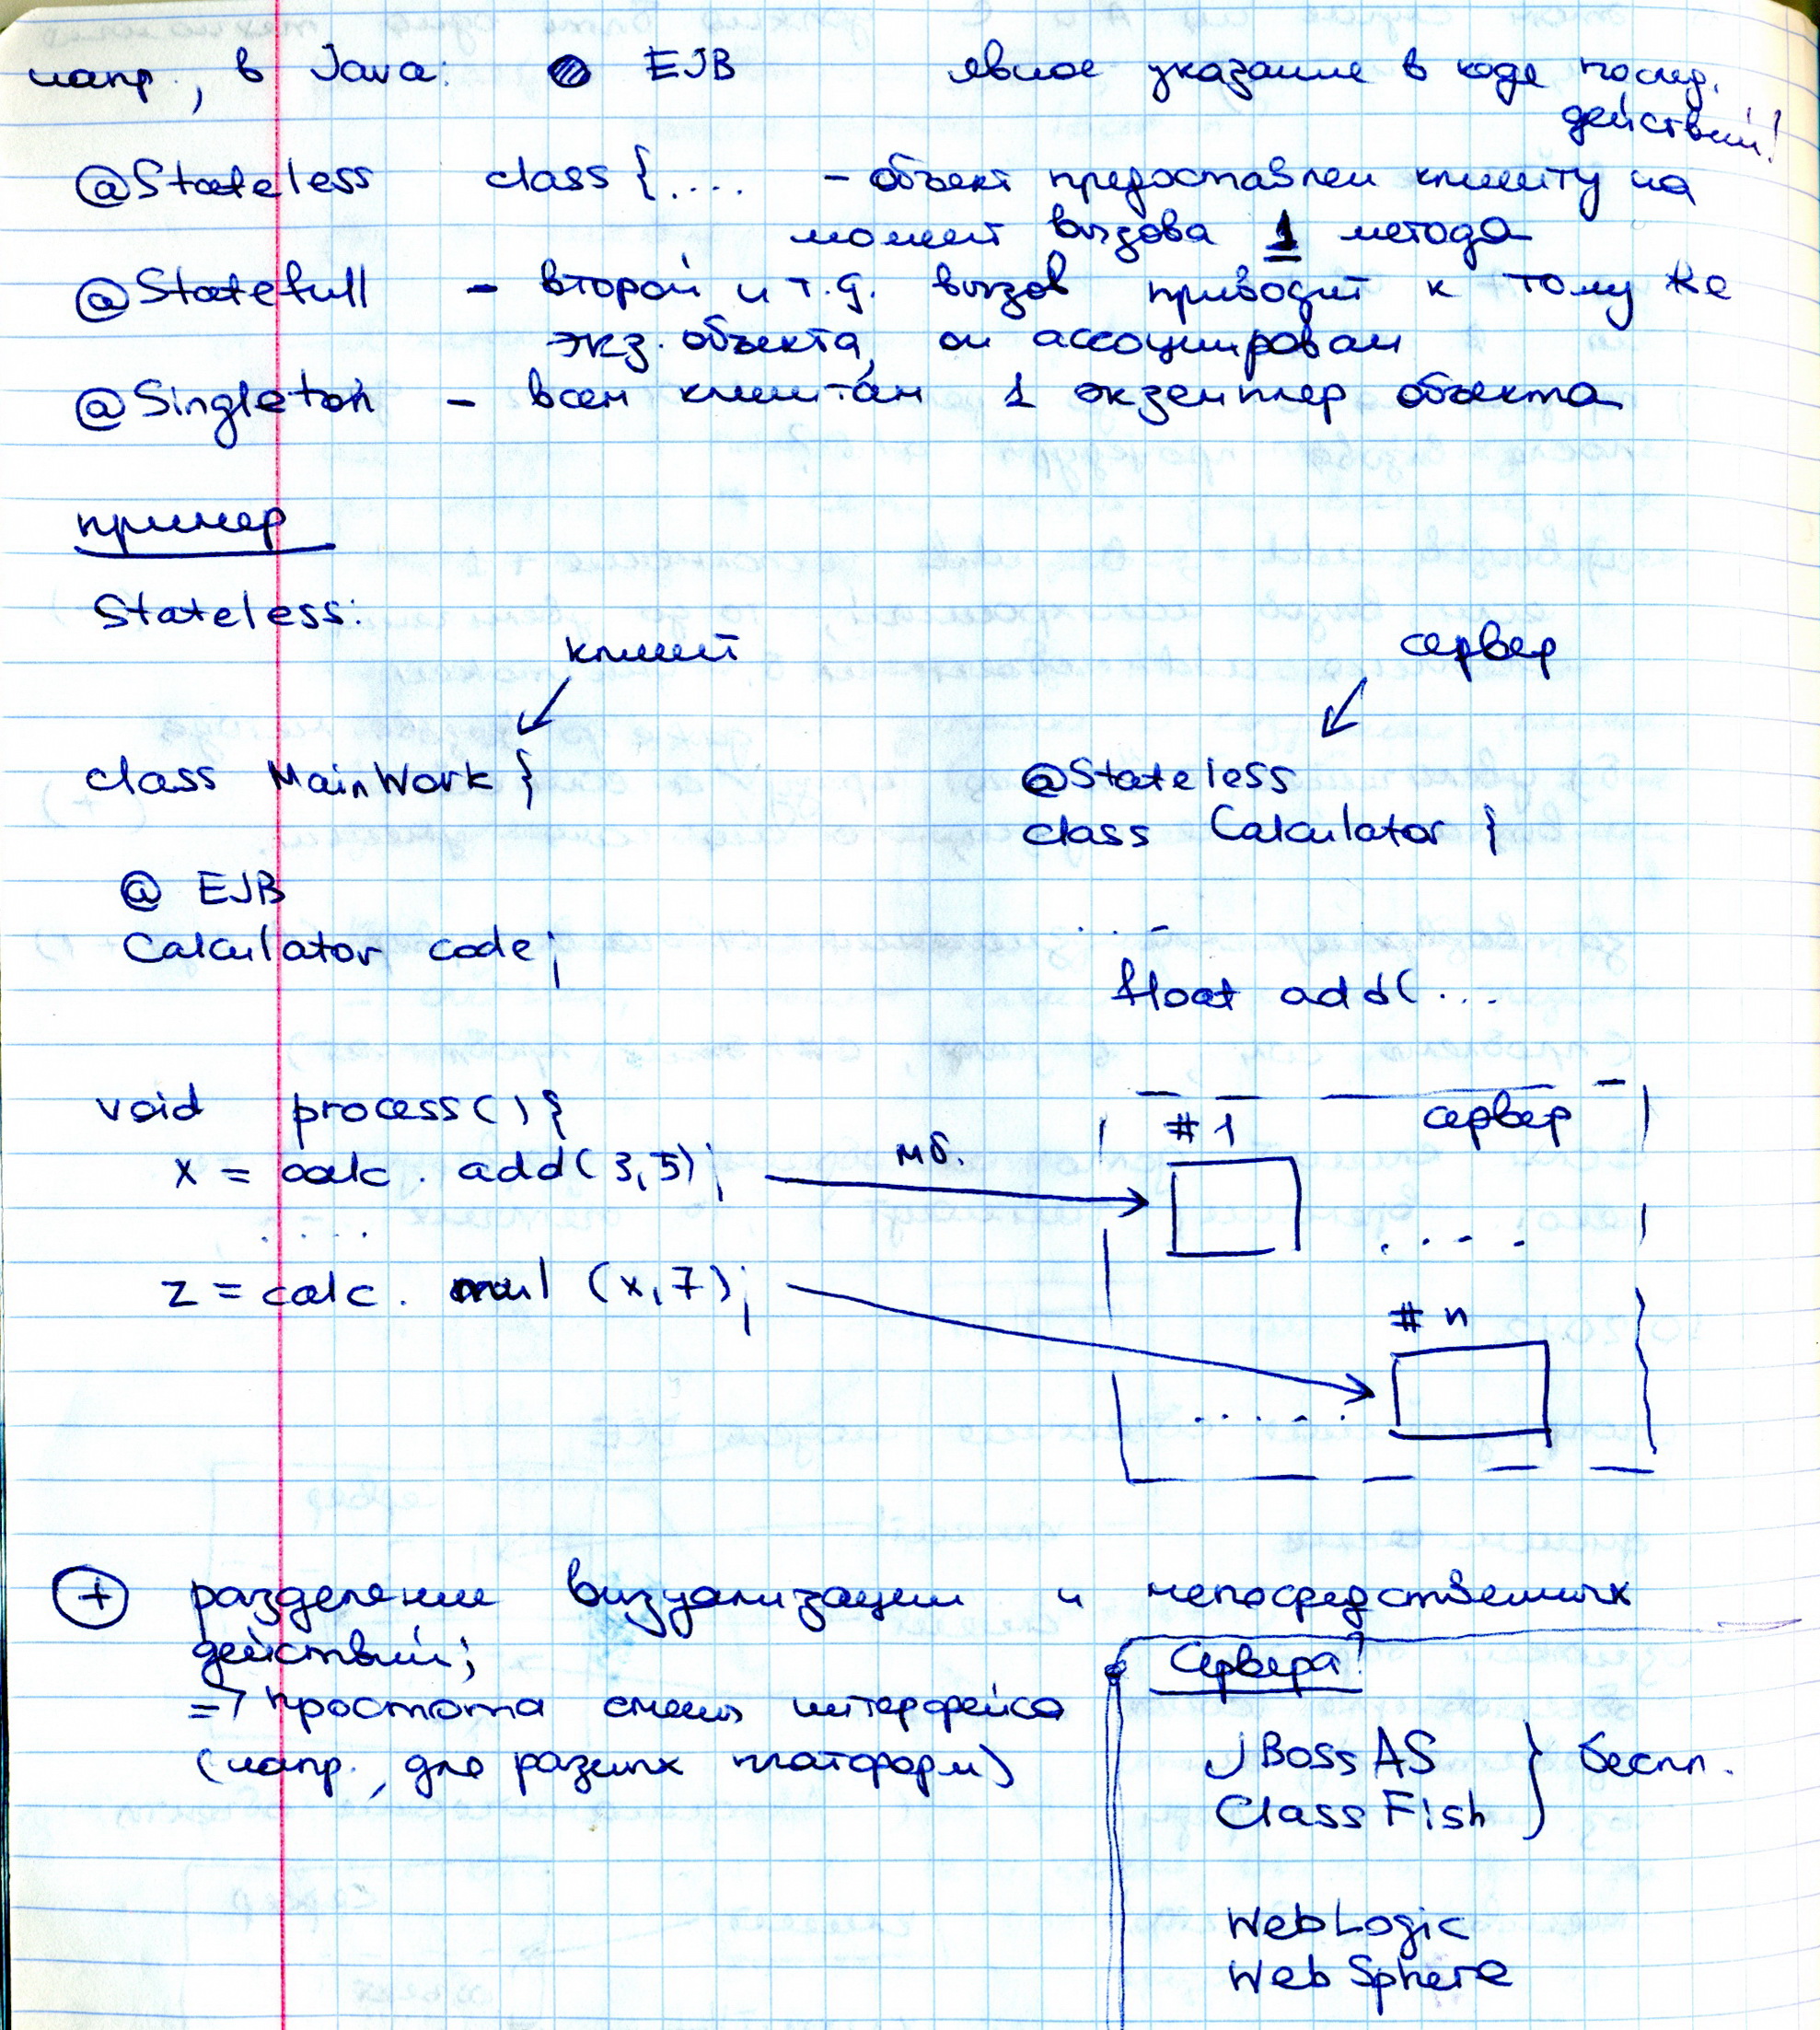 напр., в Java: EJB явное указание в коде послед.
действий!
@Stateless class {.... – объект предоставлен клиенту на
момент вызова 1 метода
@Statefull – второй и т.д. вызов приводит к тому же
экз. объекта, он ассоциирован
@Singleton – всем клиентам 1 экземпляр объекта
пример
Stateless:
клиент сервер
class MainWork { @Stateless
class Calculator {
@ EJB
Calculator code; ...
float add(...
void process() { #1 сервер
x = calc. add(3,5); мб.
..... ....
z = calc. mul (x,7); # n
......
+ разделение визуализации и непосредственных
действий; Сервера!
=> простота смены интерфейса
(напр., для разных платформ) JBoss AS } беспл.
Class Fish
WebLogic
WebSphere